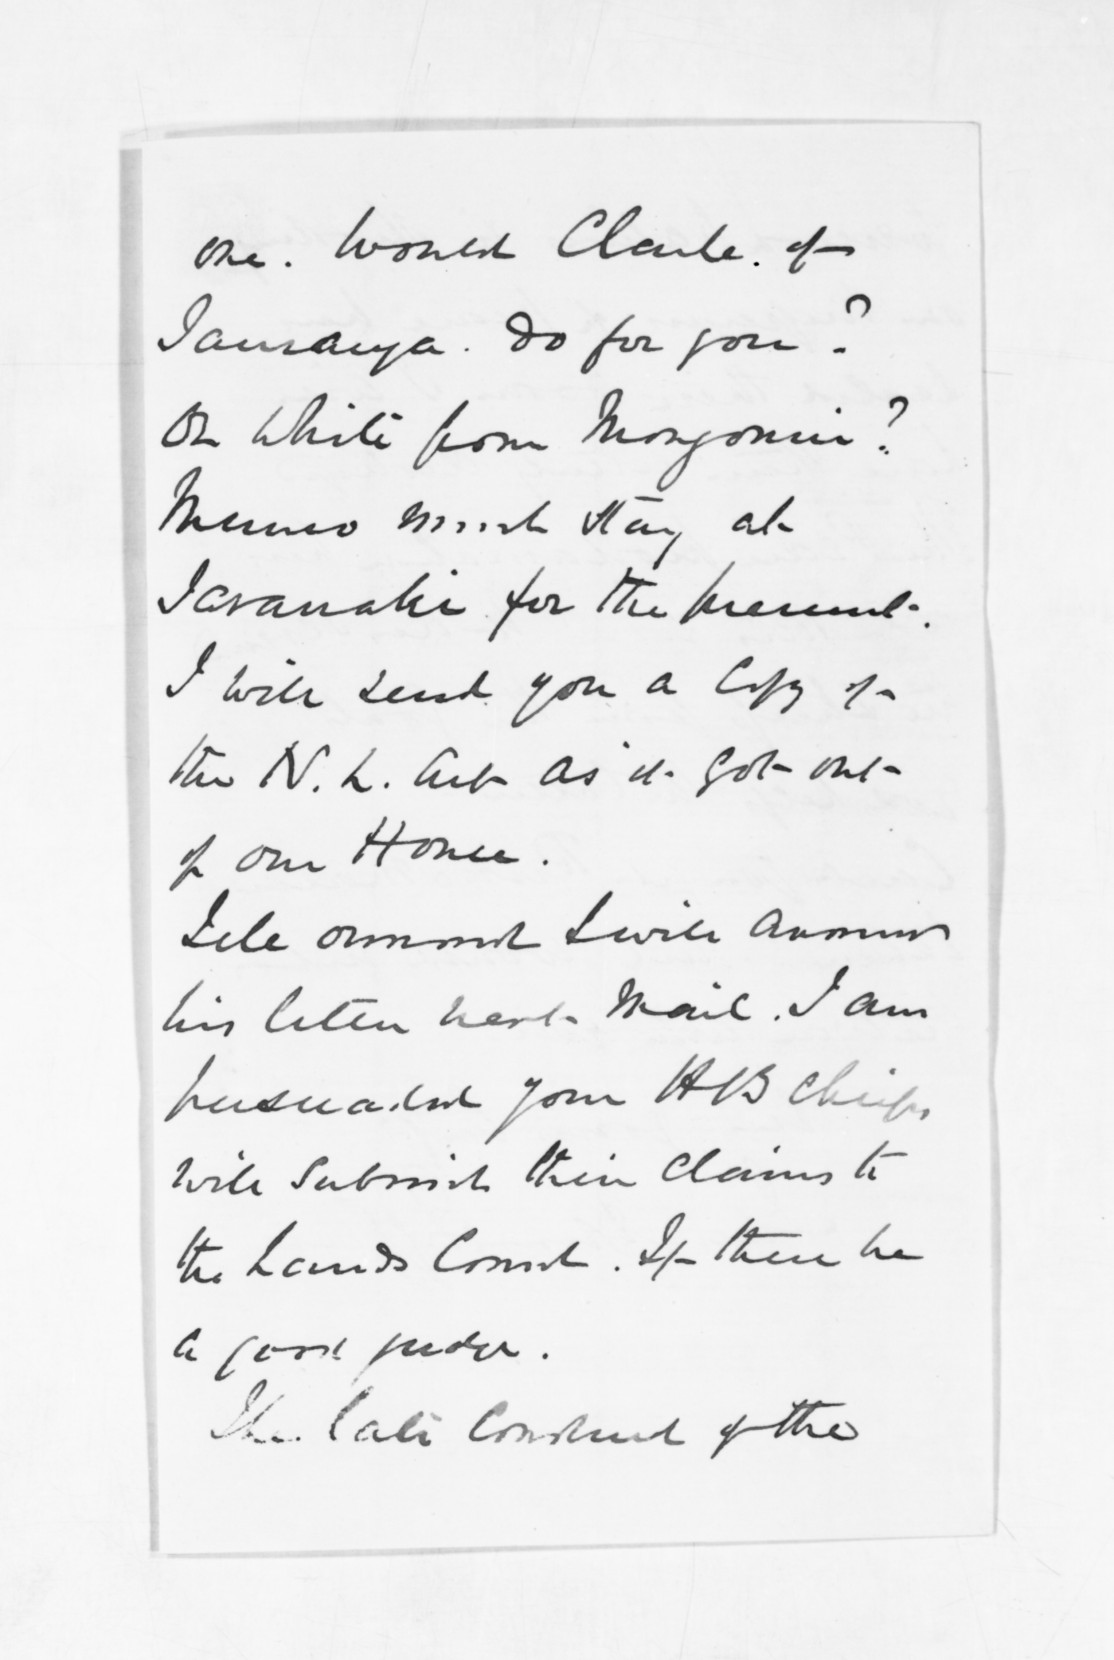 one. Would Clarke. of
Tauranga. do for you?
Or White from Mongonui?
Munro must stay at
Taranaki for the present.
I will send you a Copy of
the N. L. Act as it got out
of our House.
Tell Ormond I will answer
his letter next Mail. I am
persuaded your HB chiefs
will submit their claims to
the Lands Court. If there be
a good judge.
The late Conduct of the